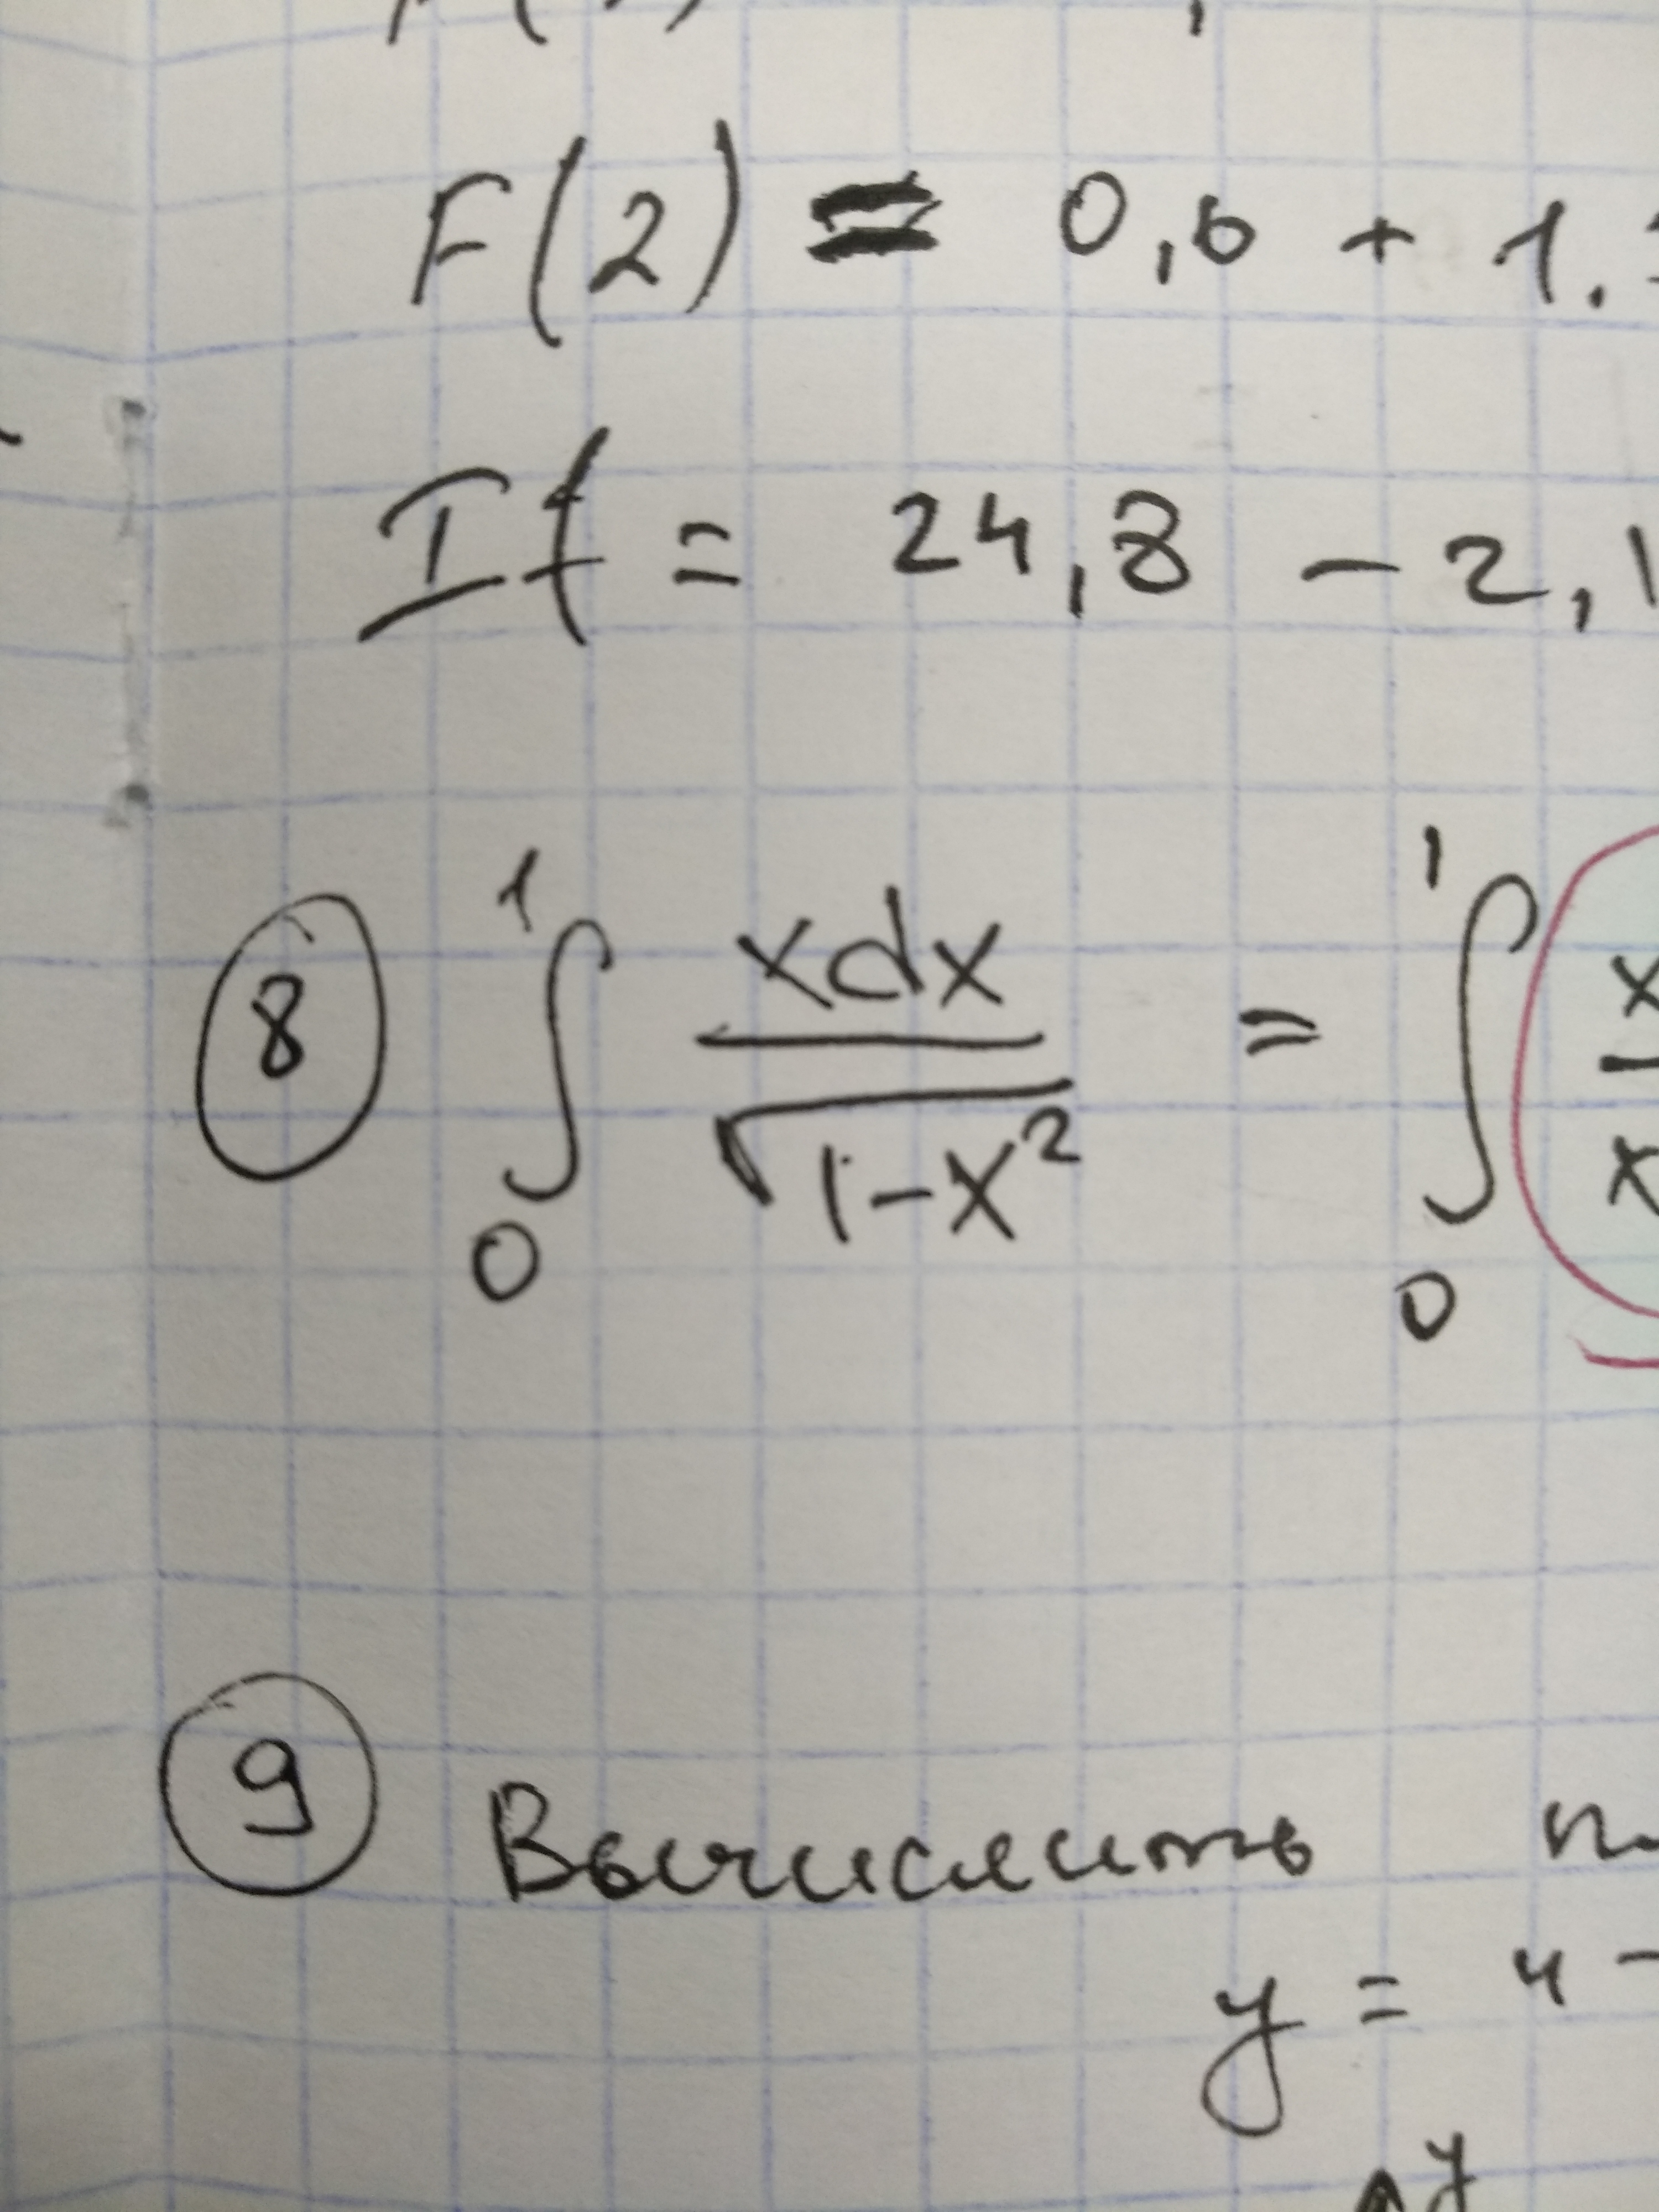 F(2) = 0,6 + 1.
If = 24,8 - 2,1
8 ∫₀¹ xdx / √1-x² = ∫₀¹ x / x
9 Вычислить
y = 4 -
y